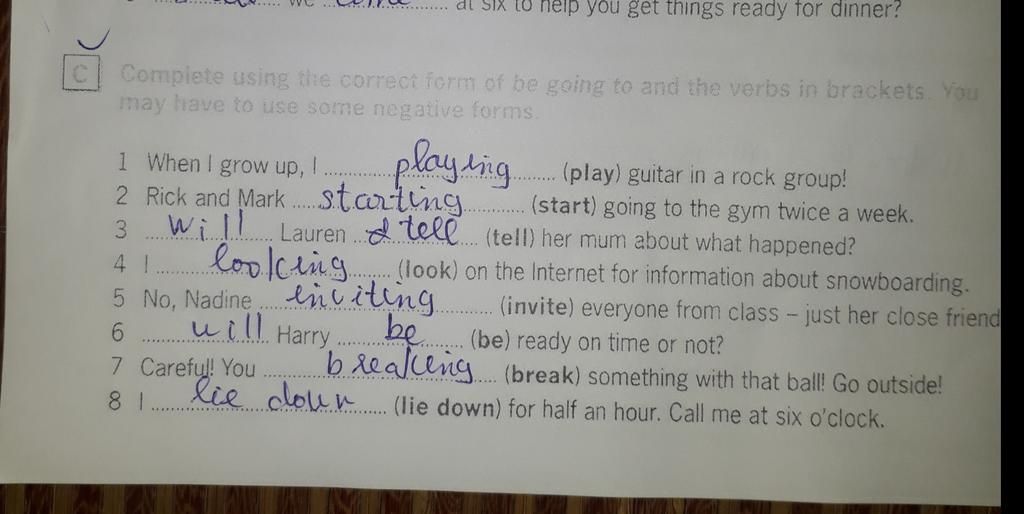 we come ........ at six to help you get things ready for dinner?
C Complete using the correct form of be going to and the verbs in brackets. You
may have to use some negative forms.
1 When I grow up, I ........ playing ........ (play) guitar in a rock group!
2 Rick and Mark ..... starting ............ (start) going to the gym twice a week.
3 ..... will ..... Lauren ... tell .... (tell) her mum about what happened?
4 I ......... looking ........ (look) on the Internet for information about snowboarding.
5 No, Nadine .... inviting ........... (invite) everyone from class – just her close friend
6 ......... will .. Harry ......... be ........ (be) ready on time or not?
7 Careful! You ............ breaking .... (break) something with that ball! Go outside!
8 I ........ lie down ...... (lie down) for half an hour. Call me at six o'clock.